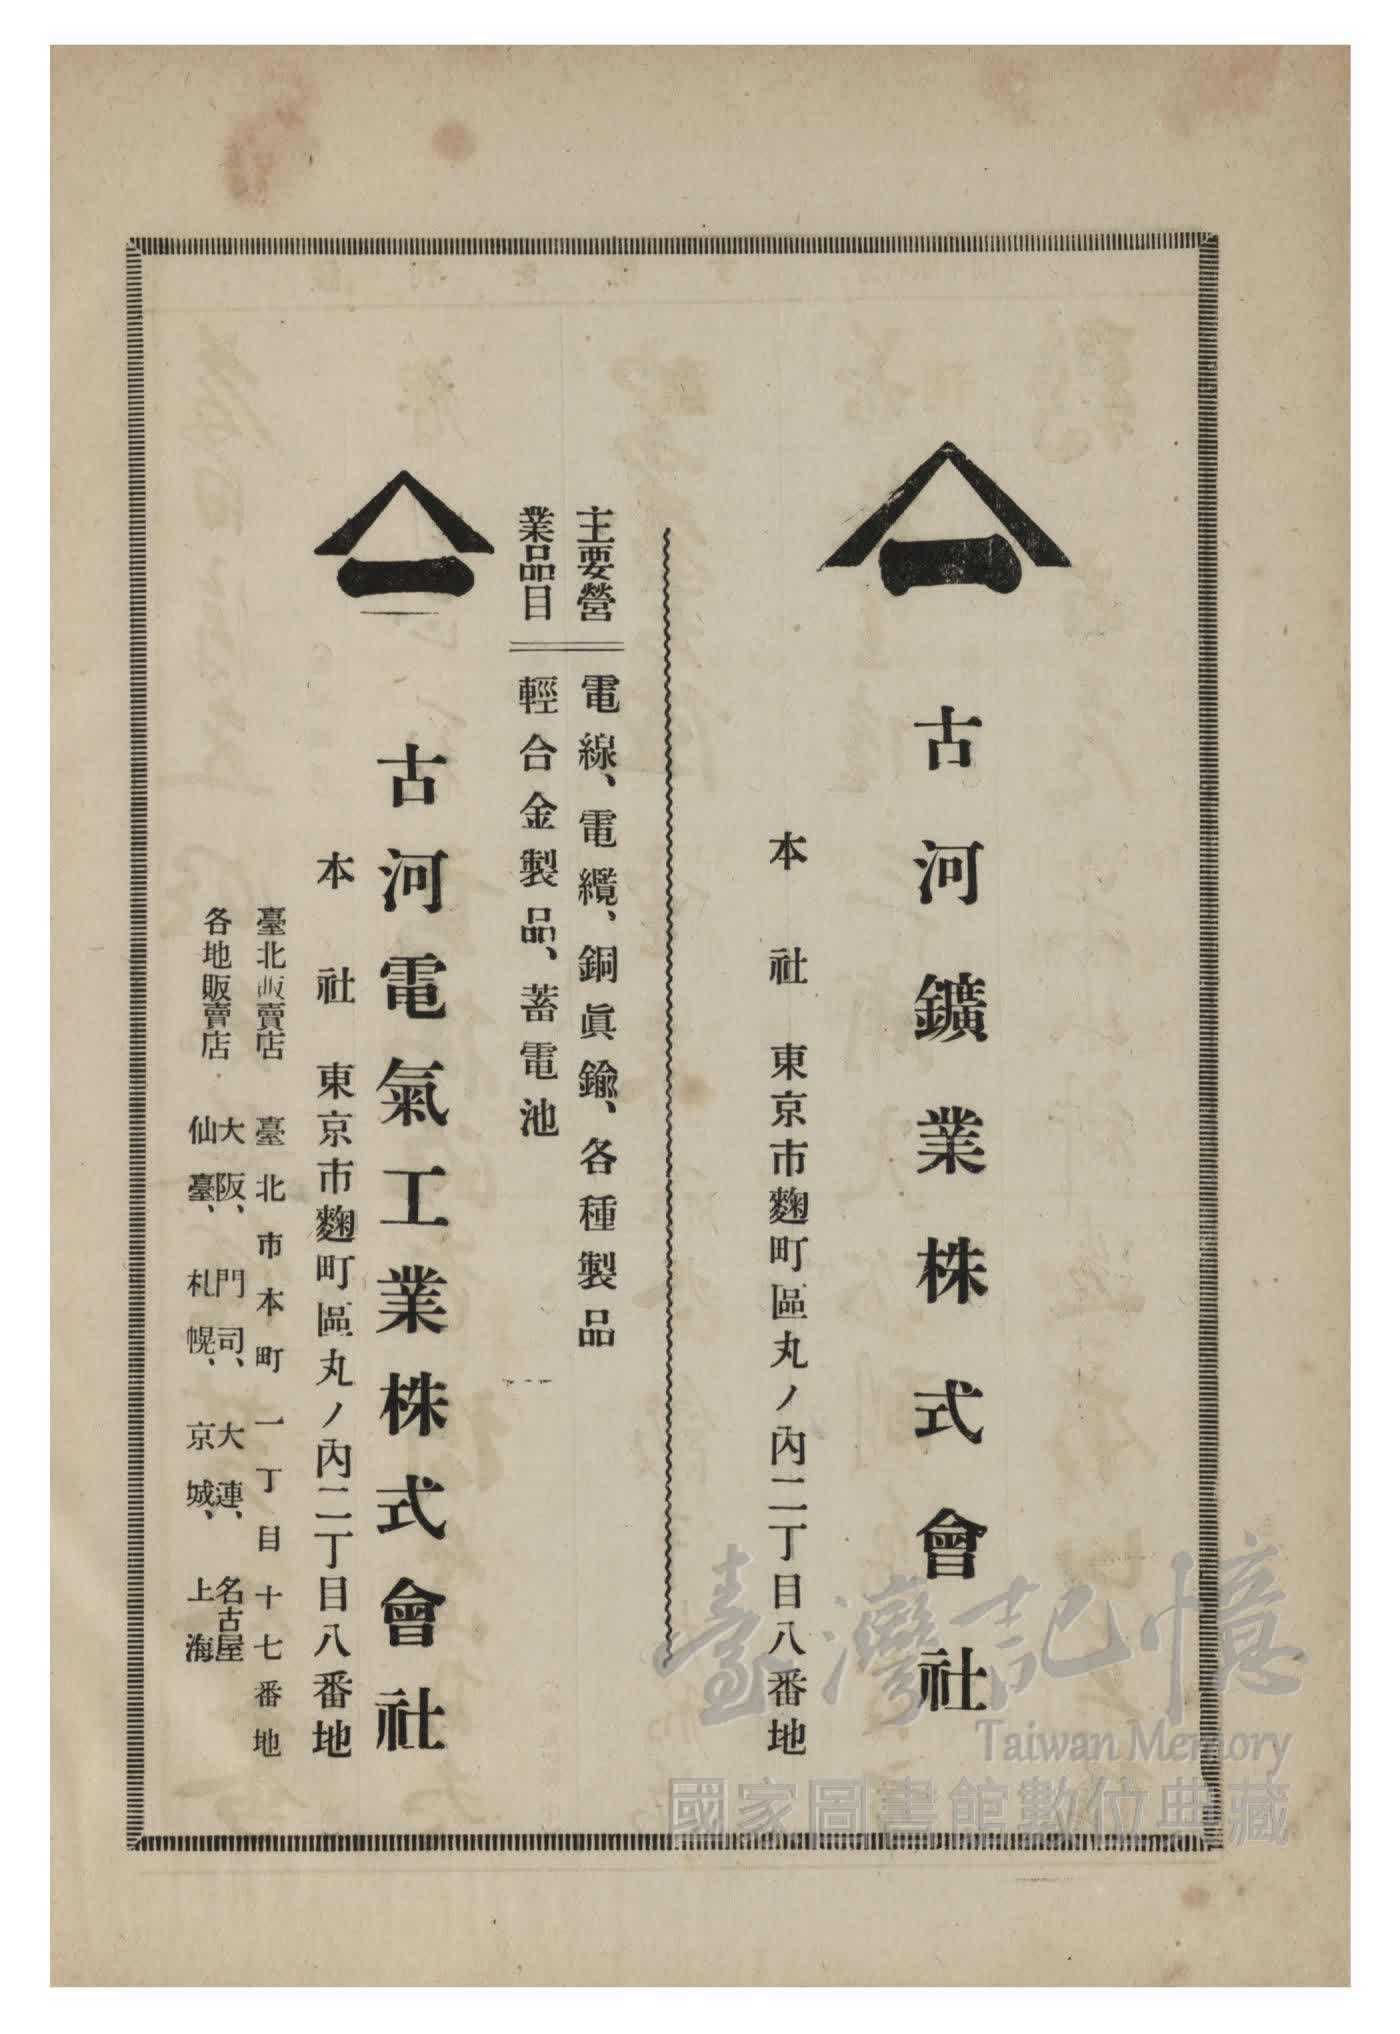 古河鑛業株式會社
本社 東京市麴町區丸ノ內二丁目八番地
主要營業品目
電線、電纜、銅眞鍮、各種製品
輕合金製品、蓄電池
古河電氣工業株式會社
本社 東京市麴町區丸ノ內二丁目八番地
臺北販賣店 臺北市本町一丁目十七番地
各地販賣店 大阪、門司、大連、名古屋
仙臺、札幌、京城、上海
臺灣記憶
Taiwan Memory
國家圖書館數位典藏